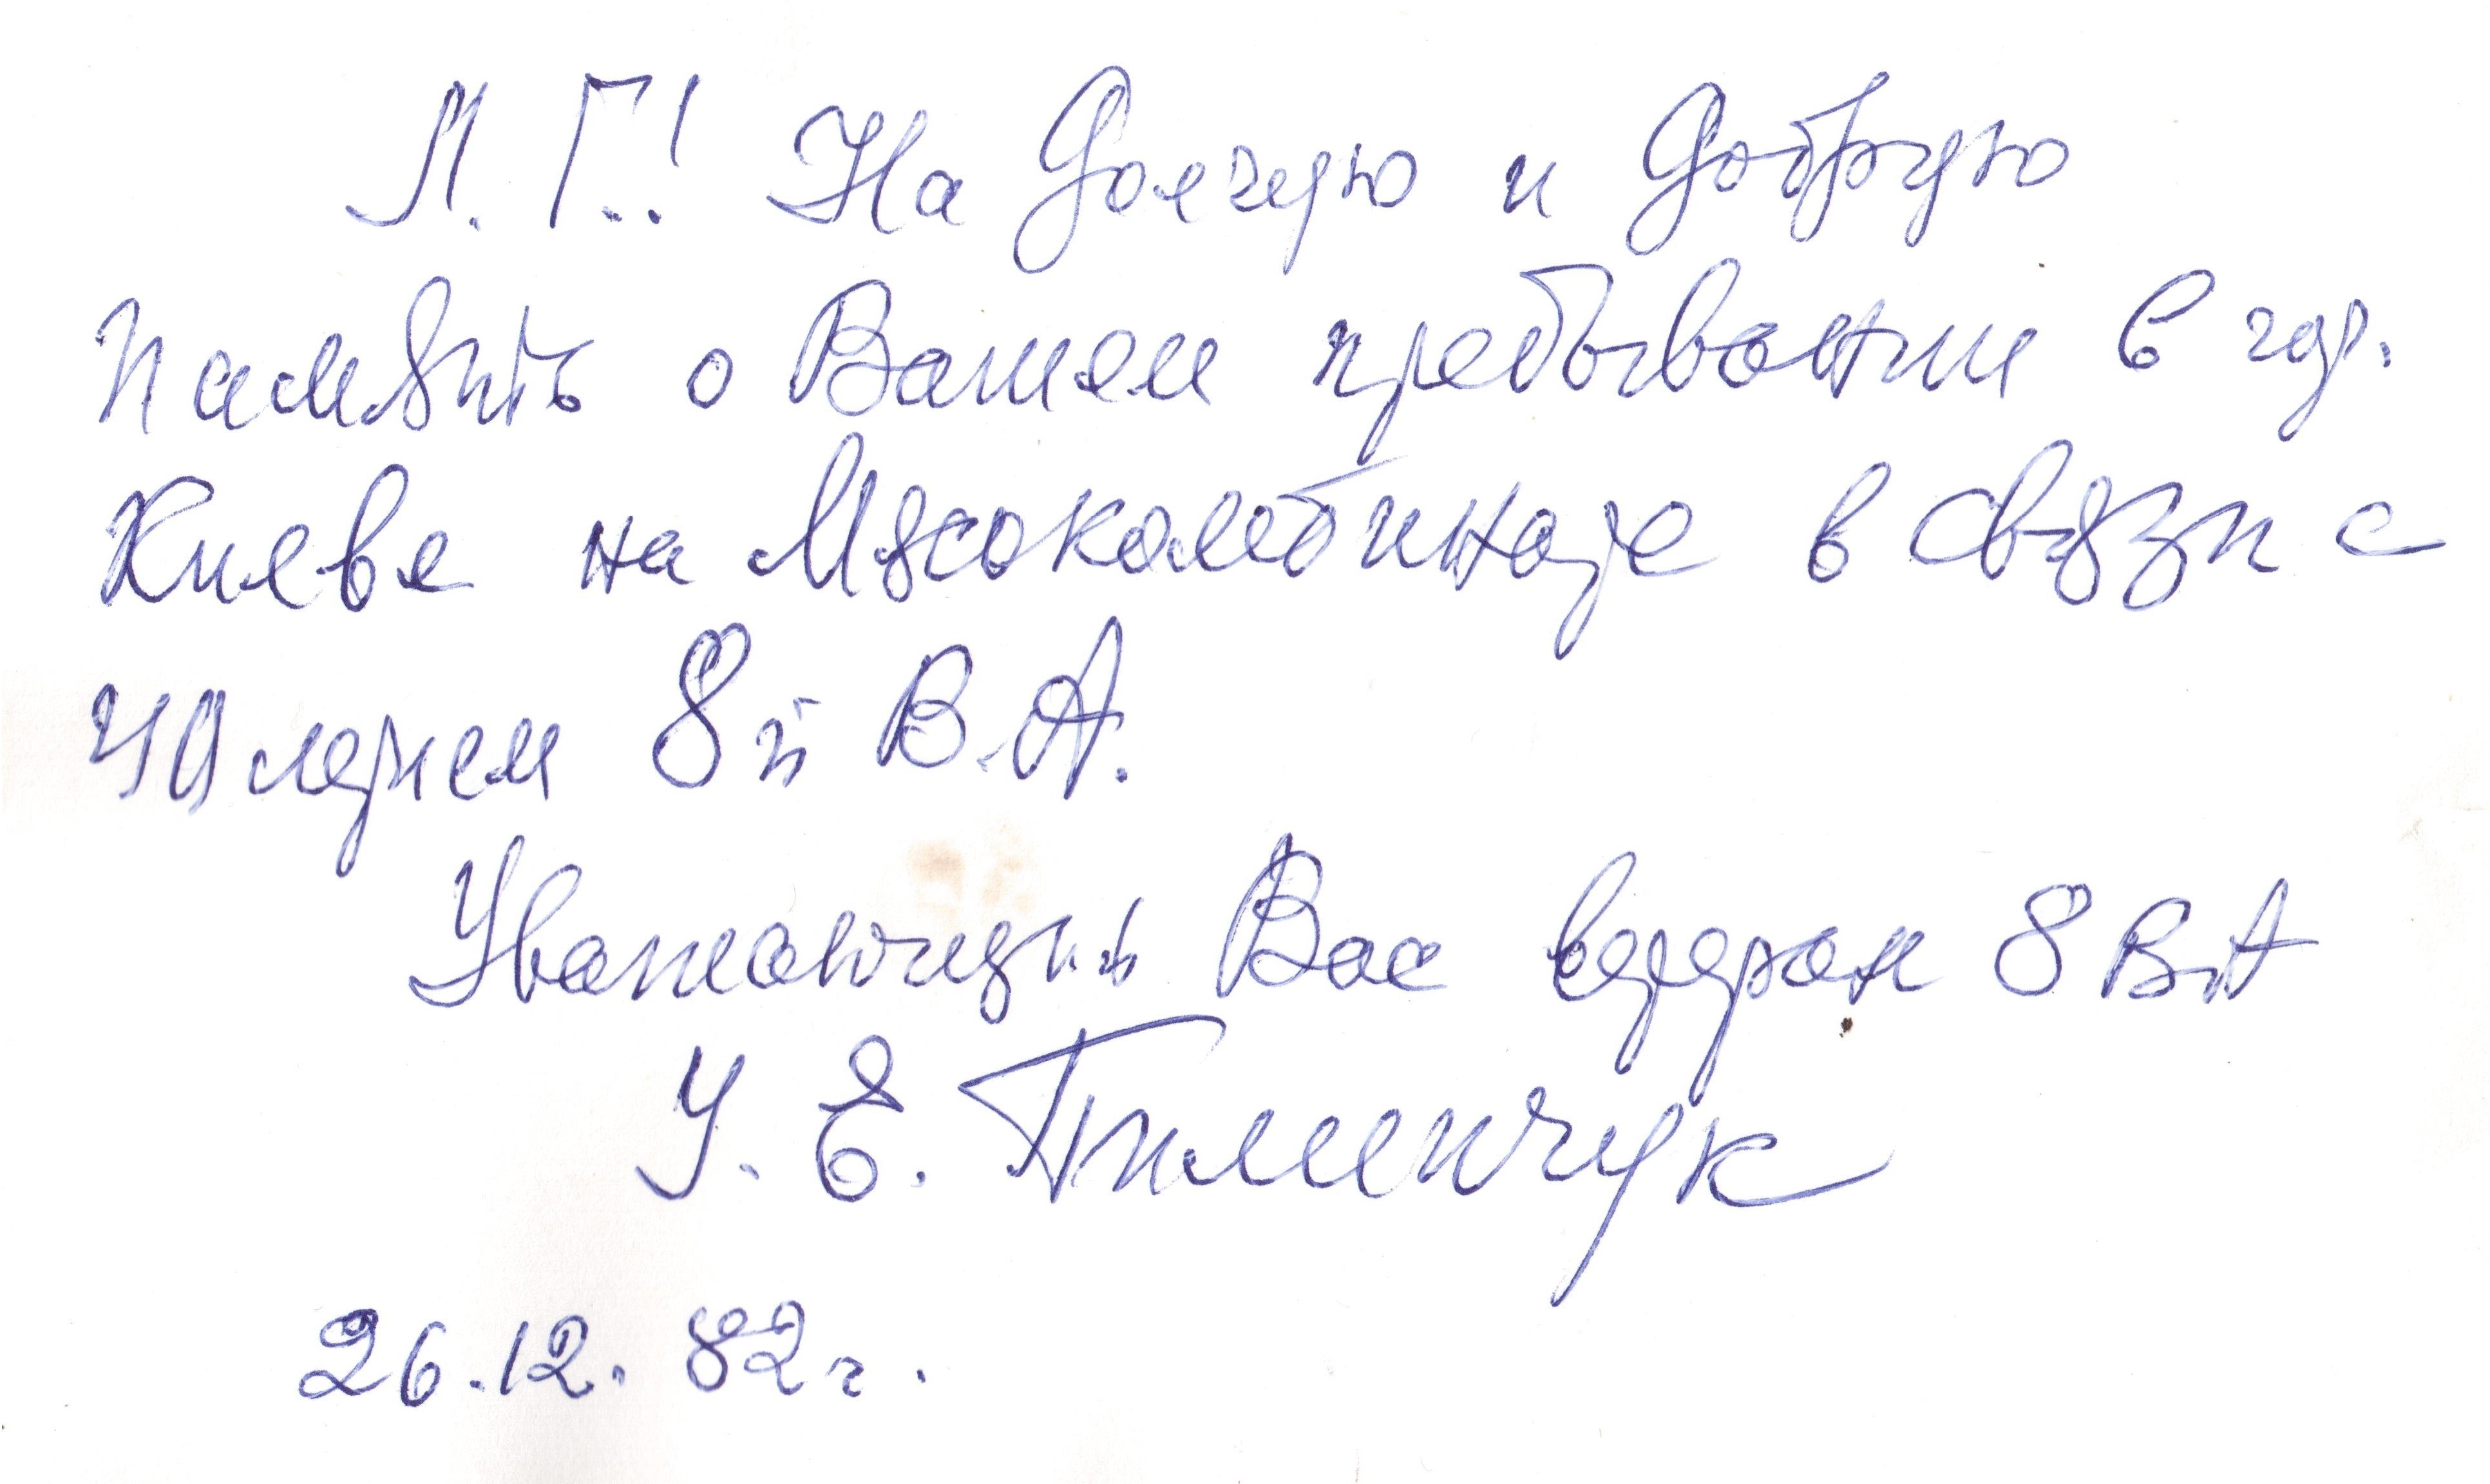 Л. Г.! На долгую и добрую
память о Вашем пребывании в гор.
Киеве на Мясокомбинате в связи с
40 летием 8й В.А.
Уважающий Вас ветеран 8 ВА
У. Е. Тимчук
26.12.82г.